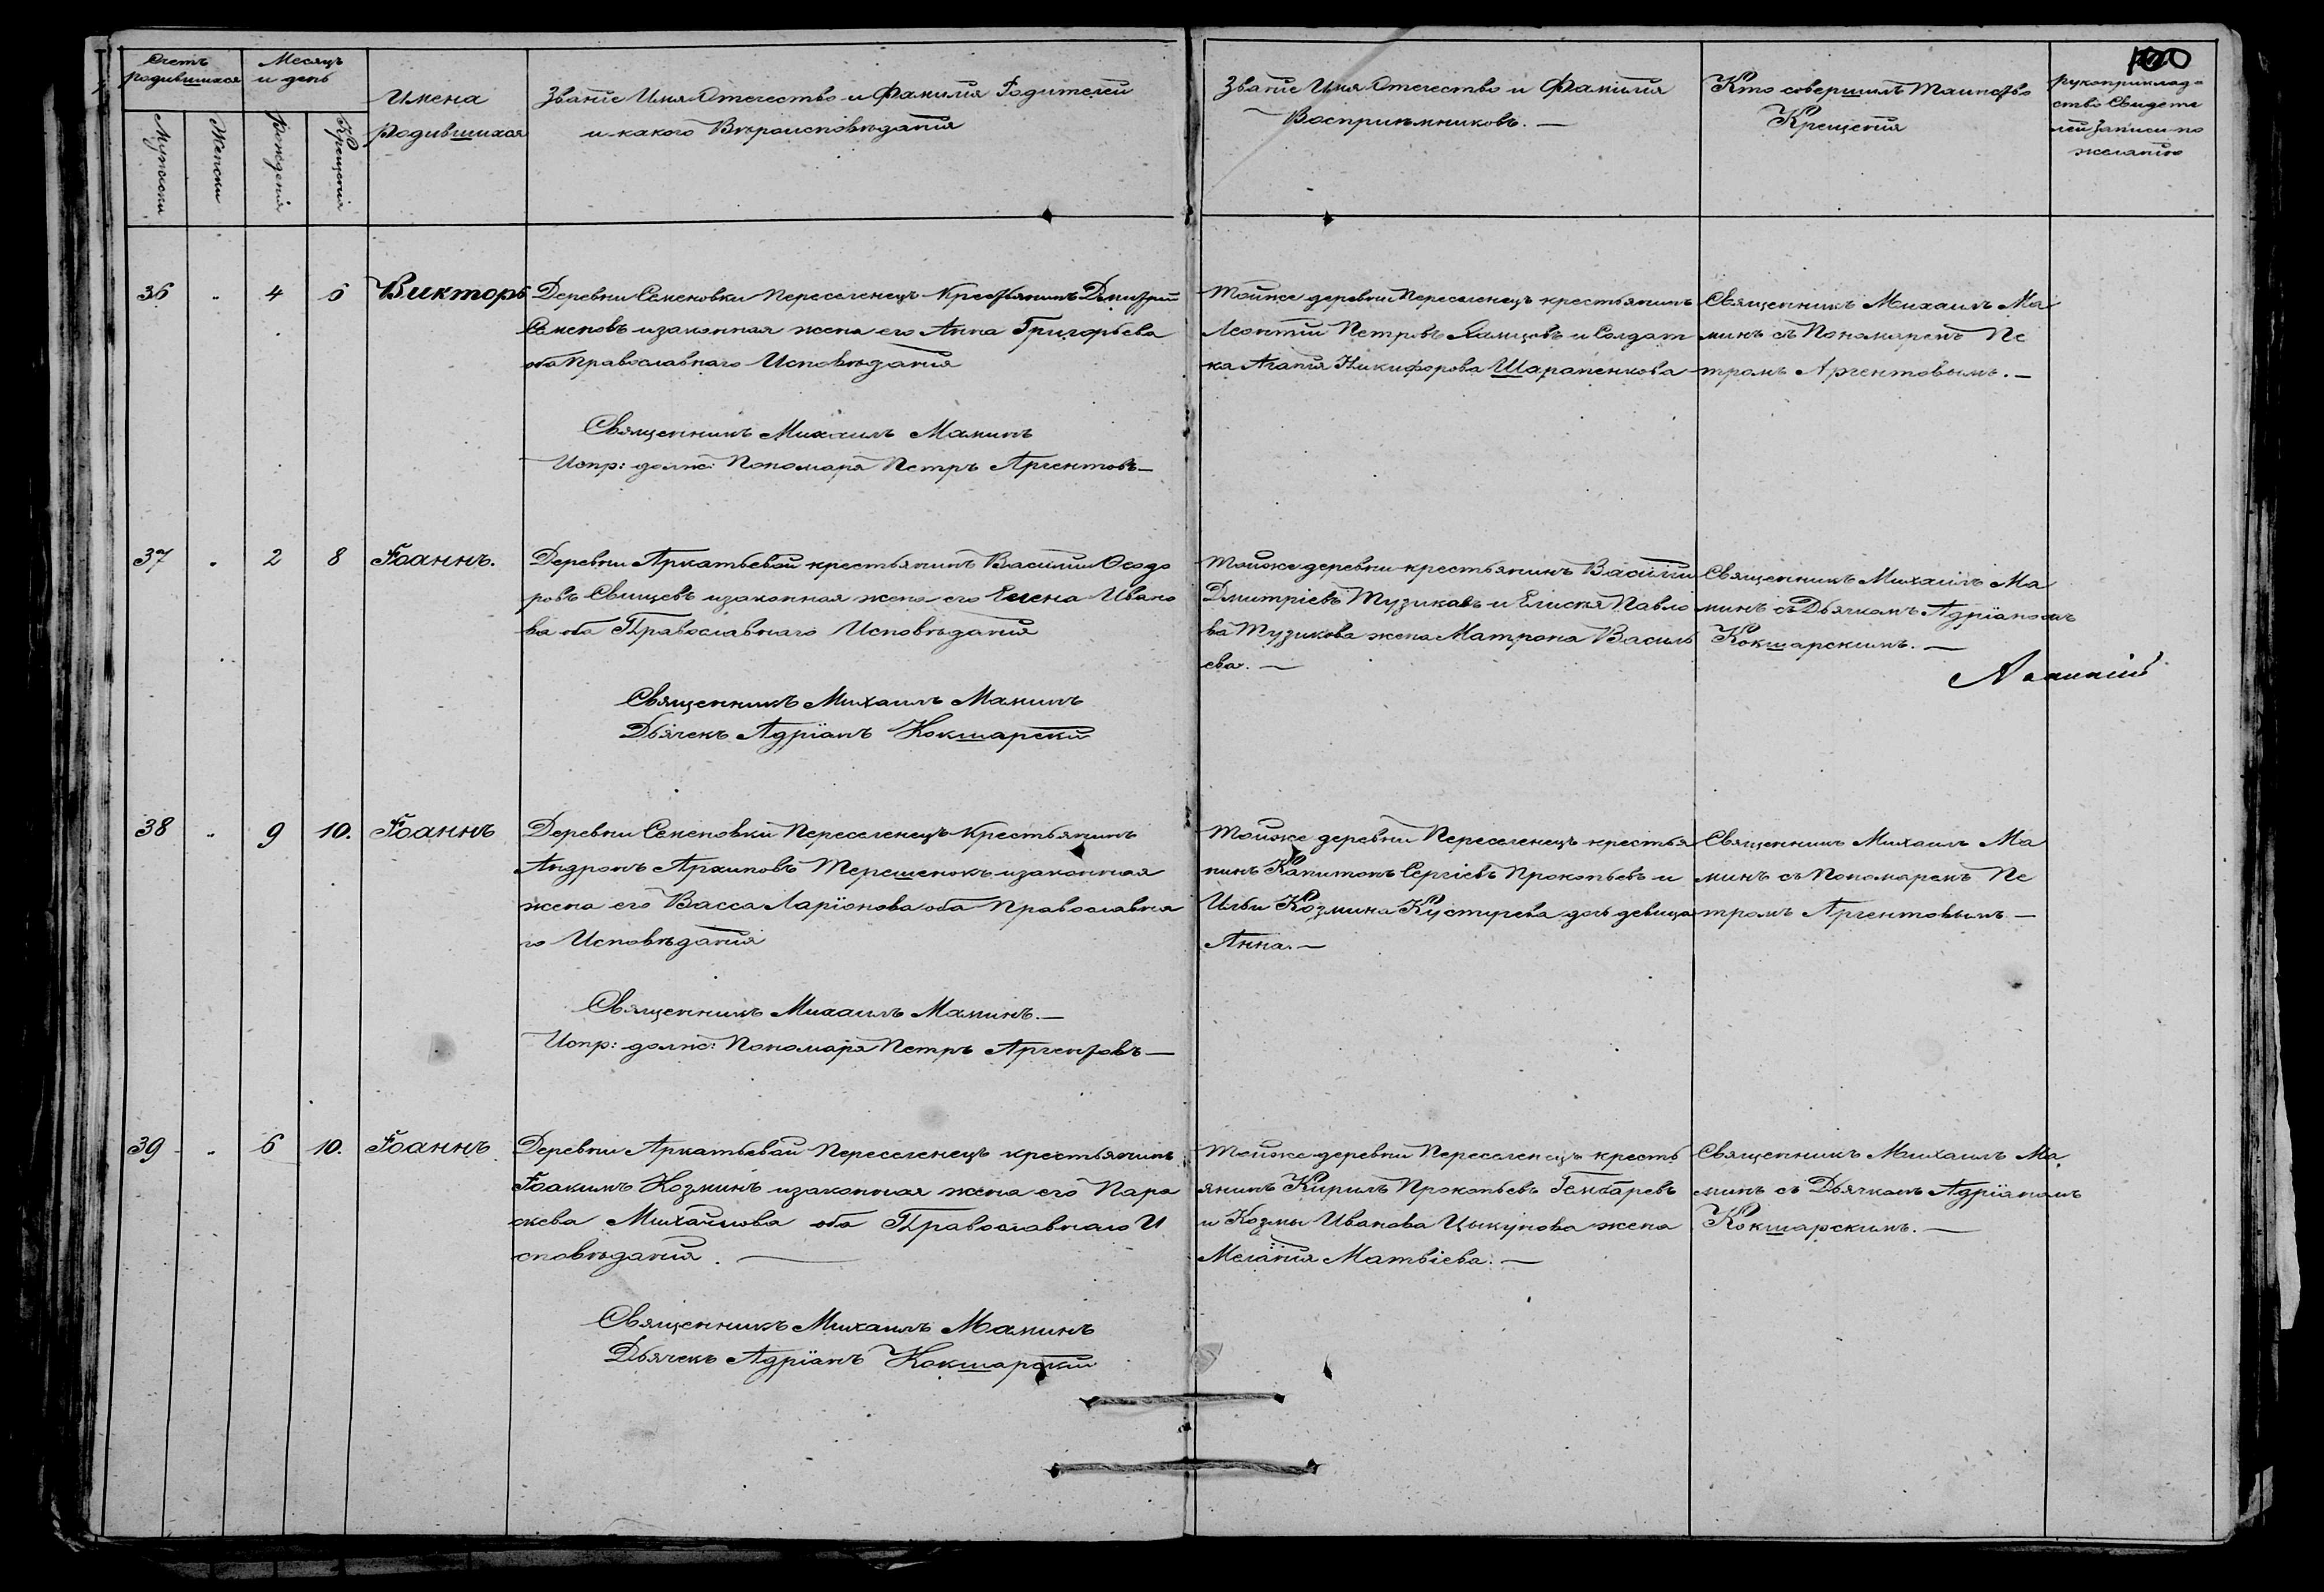 100
Счетъ родившихся
Месяцъ и день
Мужески
Женски
Рожденія
Крещенія
Имена
родившихся
Званіе Имя Отечество и Фамилія Родителей
и какого Вѣроисповѣданія
Званіе Имя Отечество и Фамилія
Восприѣмниковъ. —
Кто совершилъ Таинство
Крещенія
рукоприклад
ство Свидете
лей записи по
желанію
36 " 4 6 Викторъ
Деревни Семеновки Переселенецъ Крестьянинъ Дмитрій
Семеновъ изаконная жена его Анна Григорьева
оба православнаго Исповѣданія
Священникъ Михаилъ Маминъ
Испр: долж: Пономаря Петръ Аргентовъ —
Тойже деревни Переселенецъ крестьянинъ
Леонтій Петровъ и Солдат
ка Агапія Никифорова Шарапенкова
Священникъ Михаилъ Ма
минъ съ Пономаремъ Пе
тромъ Аргентовымъ. —
37 " 2 8 Іоаннъ.
Деревни Аркатьевой крестьянинъ Василии Ѳеодо
ровъ Свищевъ изаконная жена его Елена Ивано
ва оба Православнаго Исповѣданія
Священникъ Михаилъ Маминъ
Дьячекъ Адріанъ Кокшарскій
Тойже деревни крестьянинъ Василии
Дмитріевъ Тузикавъ и Павло
ва Тузикова жена Матрона Василь
ева. —
Священникъ Михаилъ Ма
минъ съ Дьячкомъ Адріаномъ
Кокшарскимъ. —
38 " 9 10. Іоаннъ
Деревни Семеновки Переселенецъ Крестьянинъ
Андронъ Архиповъ Терешенокъ изаконная
жена его Васса Ларіонова оба Православна
го Исповѣданія
Священникъ Михаилъ Маминъ. —
Испр: долж: Пономаря Петръ Аргентовъ —
Тойже деревни Переселенецъ крестья
нинъ Капитонъ Сергіевъ Прокопьевъ и
Ильи Козмина Кустырева дочь девица
Анна. —
Священникъ Михаилъ Ма
минъ съ Пономаремъ Пе
тромъ Аргентовымъ —
39 " 6 10. Іоаннъ
Деревни Аркатьевой Переселенецъ крестьянинъ
Іоакимъ Козминъ изаконная жена его Пара
скева Михайлова оба Православнаго И
сповѣданія. —
Священникъ Михаилъ Маминъ
Дьячекъ Адріанъ Кокшарскій
Тойже деревни Переселенецъ кресть
янинъ Кирилъ Прокопьевъ Гембаревъ
и Козмы Иванова Цыкунова жена
Меланія Матвіева. —
Священникъ Михаилъ Ма
минъ съ Дьячкомъ Адріаномъ
Кокшарскимъ. —